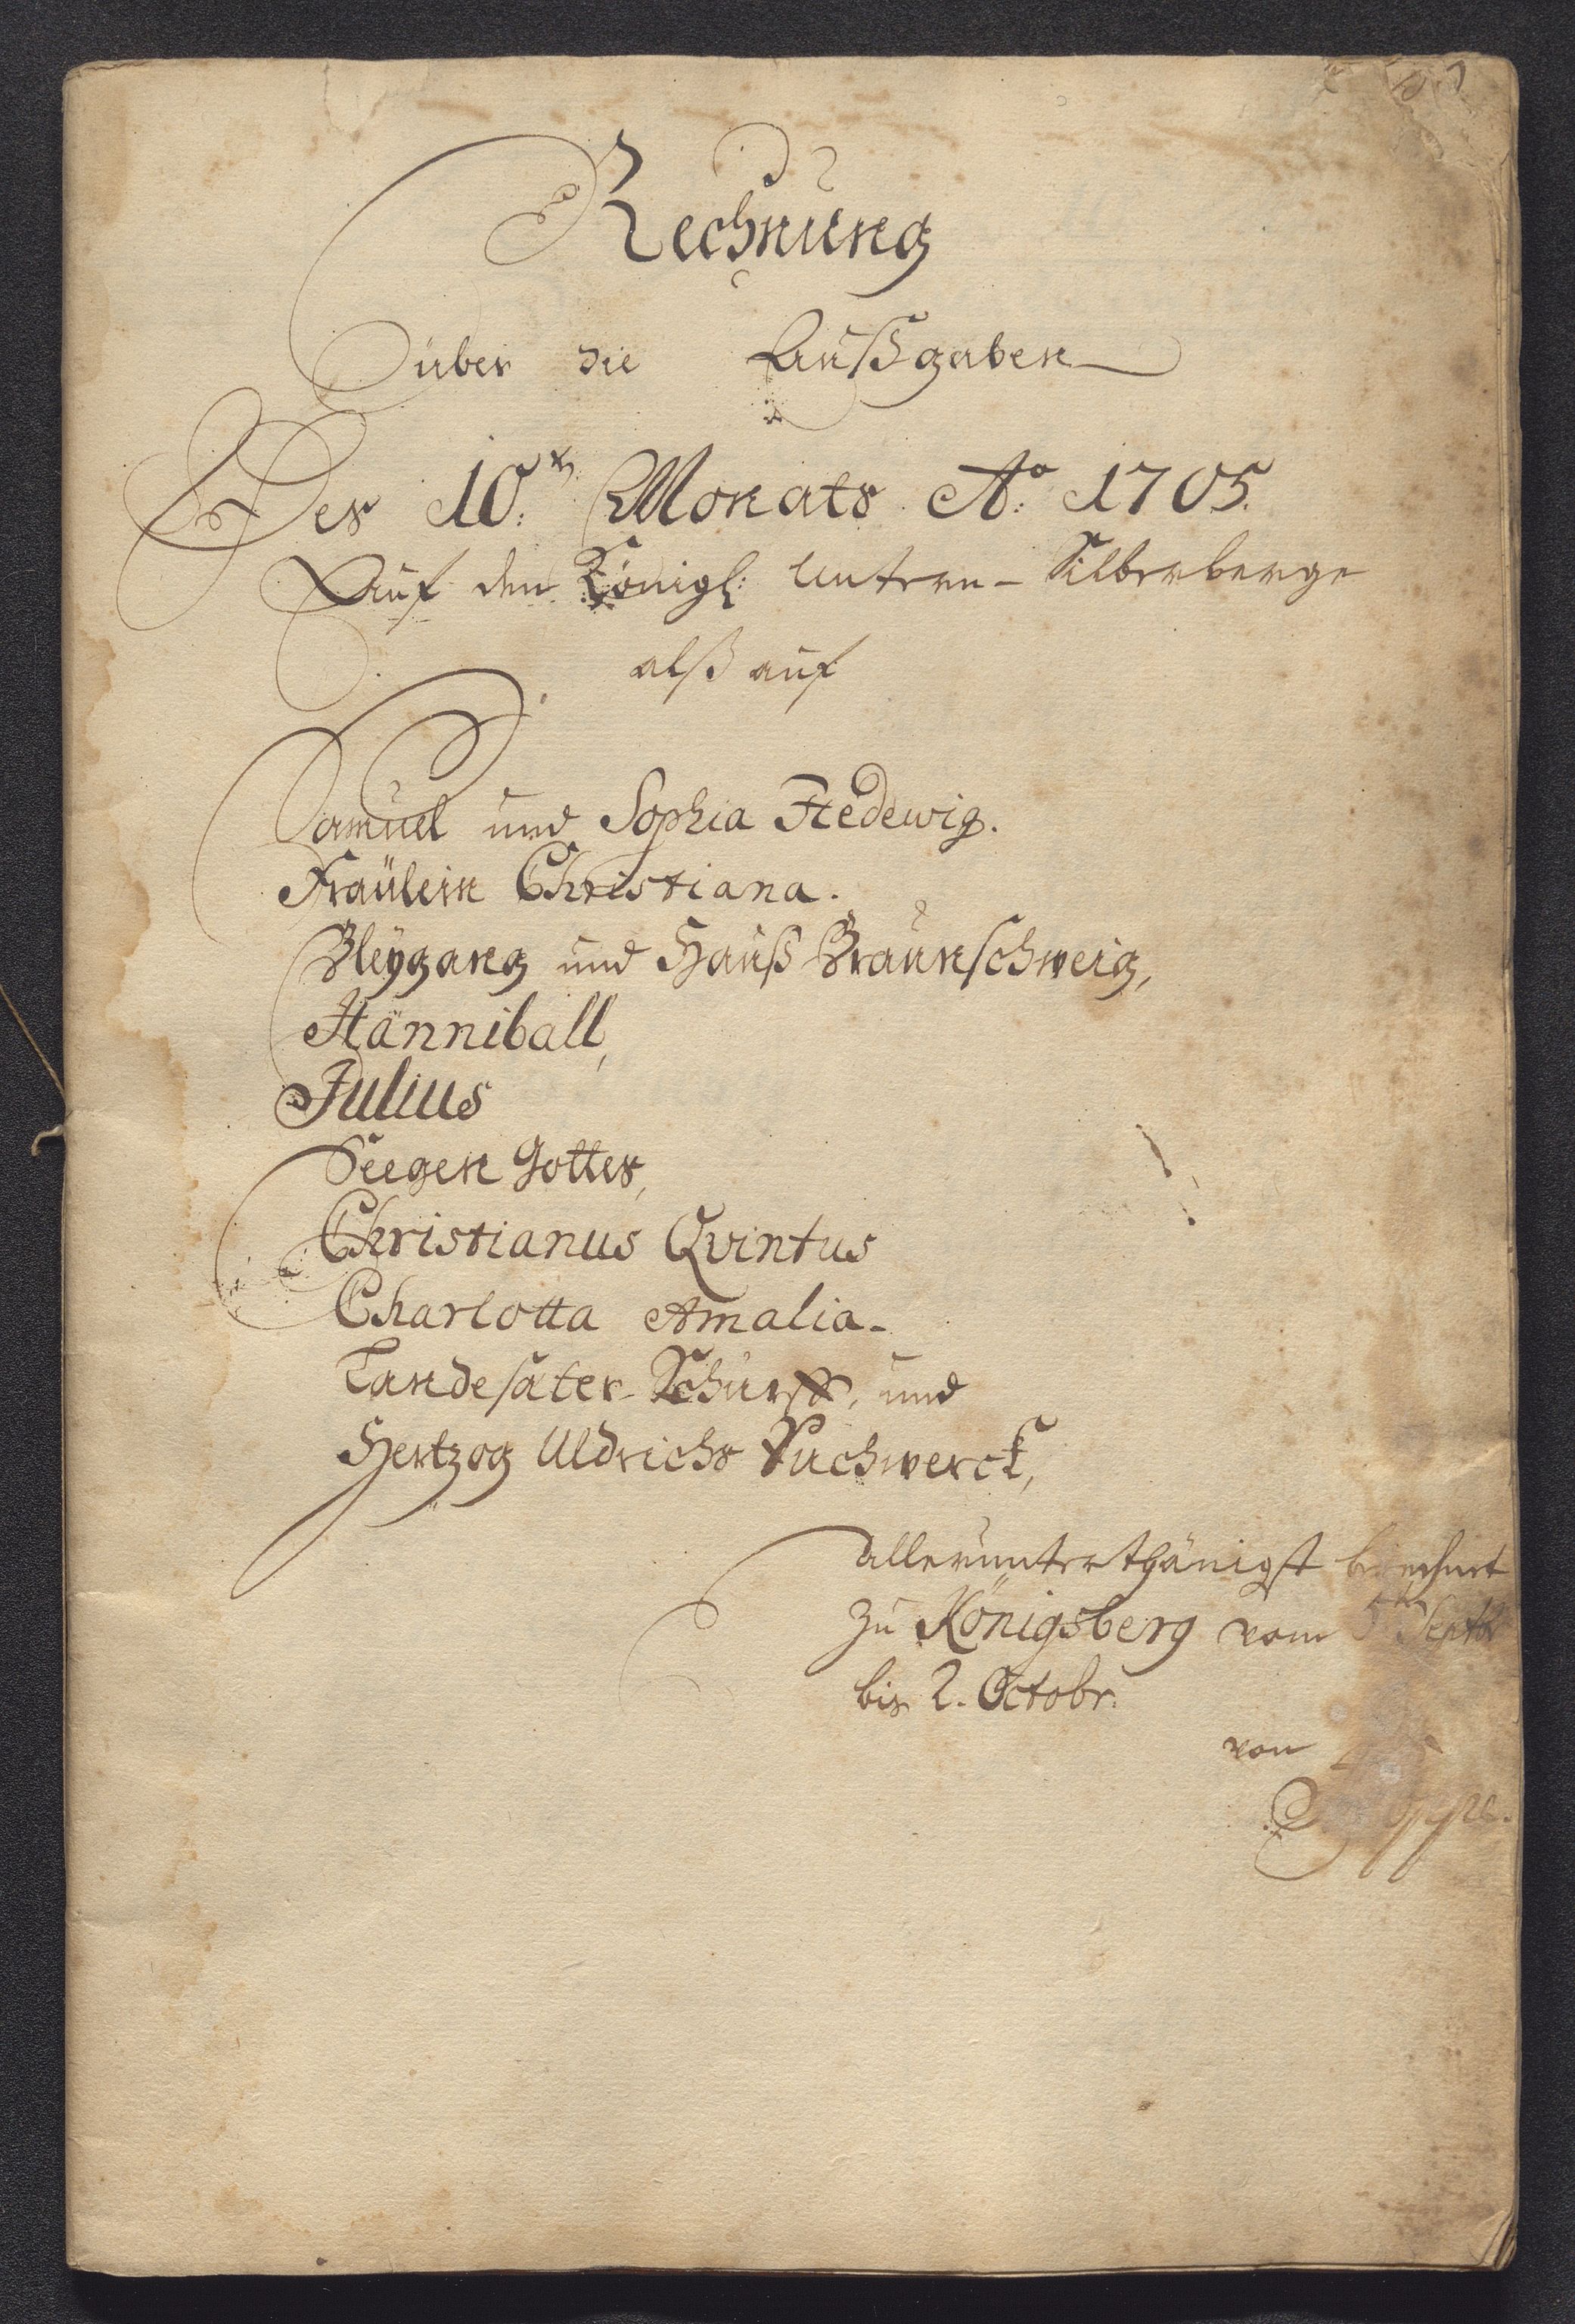 Rechnung
über die Außgaben
Des 10.ten Monats Ao. 1705.
Auf den Königl: Untern-Silberberge
alß auf
Samuel und Sophia Hedewig.
Fraülein Christiana.
Bleÿgang und Hauß Braunschweig,
Hanniball,
Julius
Seegen Gottes,
Christianus Qvintus
Charlotta Amalia-
Landesäter-Schurff, und
Hertzog Uldrichs Puchwerck,
allerunterthänigst berechnet
zu Königsberg vom 5ten Septbr
bis 2. Octobr.
von